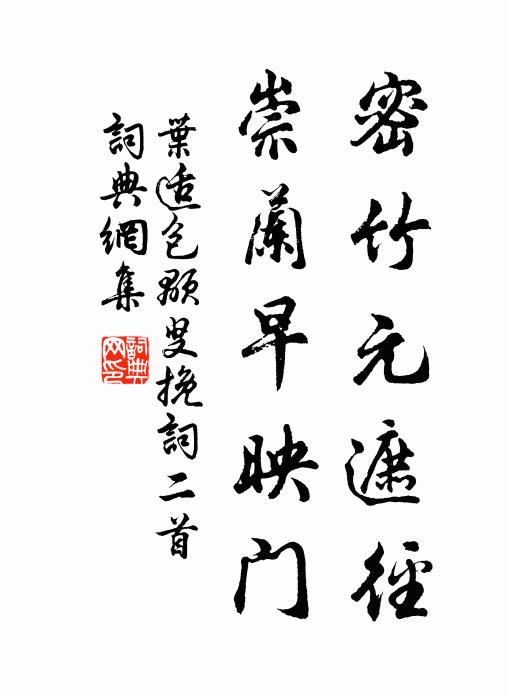 密竹元遮徑
崇蘭早映門
葉适包顒叟挽詞二首
詞典網集
詞典網印